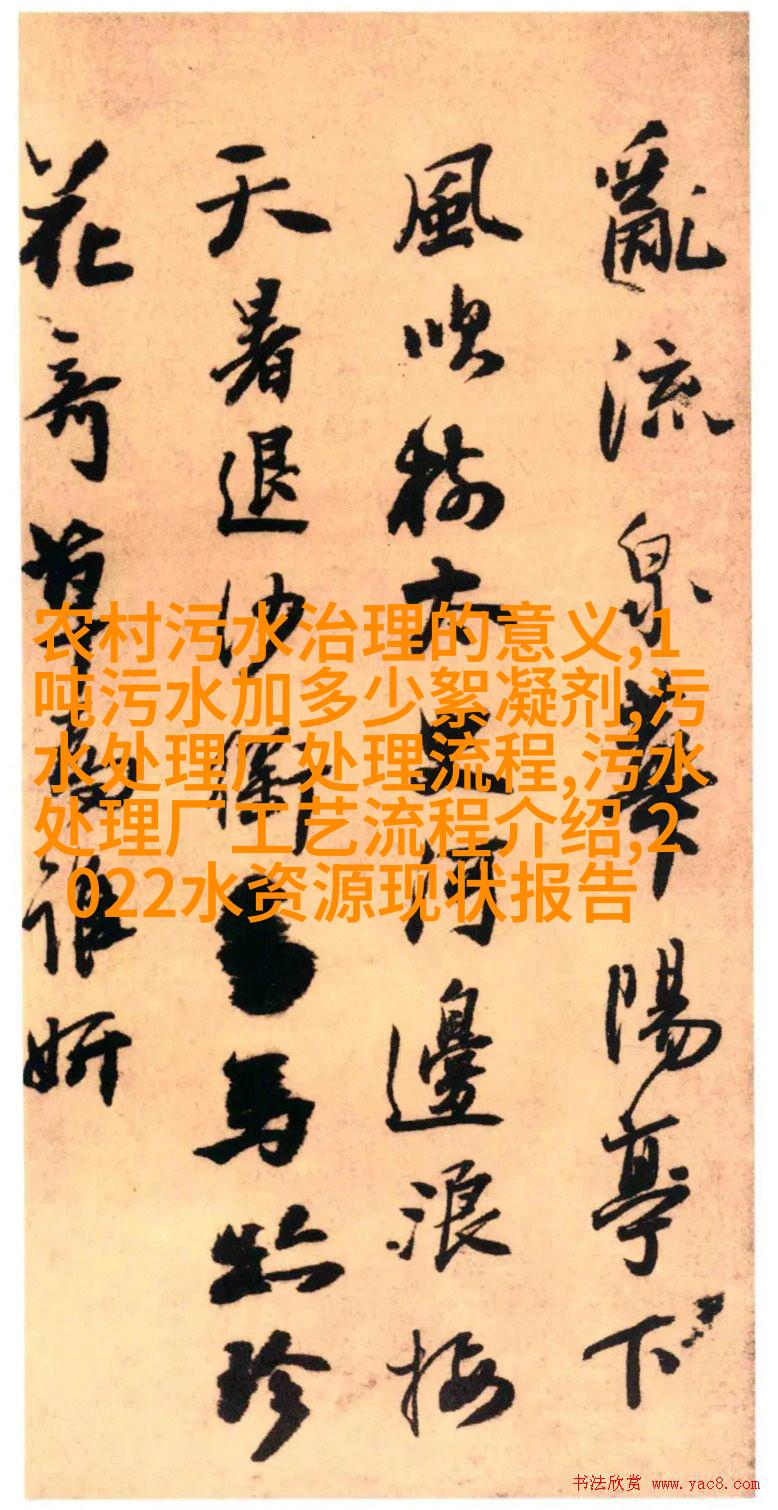 亂流泉華陽亭下
風吹樹大是何邊浪接
天暑退沙
馬蹄珍
花奇草
妍
农村污水治理的意义,1
吨污水加多少絮凝剂,污
水处理厂处理流程,污水
处理厂工艺流程介绍,2
022水资源现状报告
书法欣赏 www.yac8.com